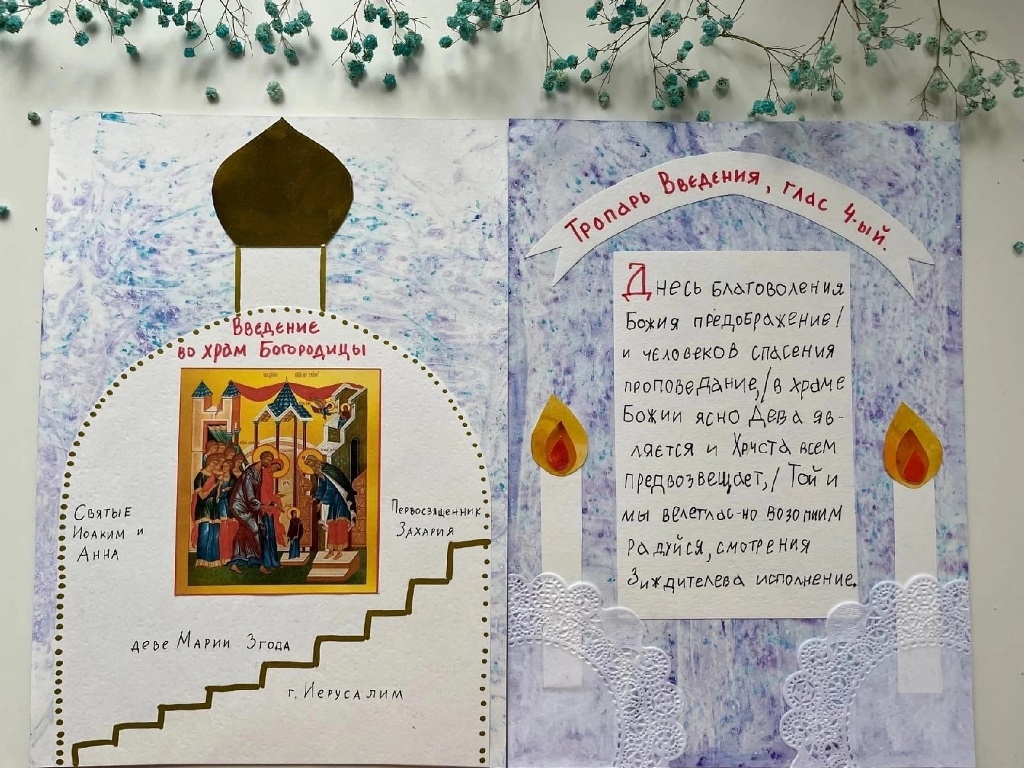 Введение
во храм Богородицы
Святые
Иоаким и
Анна
Первосвященник
Захария
деве Марии 3 года
г. Иерусалим
Тропарь Введения, глас 4-ый.
Днесь благоволения
Божия предображение/
и человеков спасения
проповедание,/ в храме
Божии ясно Дева яв-
ляется и Христа всем
предвозвещает,/ Той и
мы велеглас-но возопиим
радуйся, смотрения
Зиждителева исполнение.